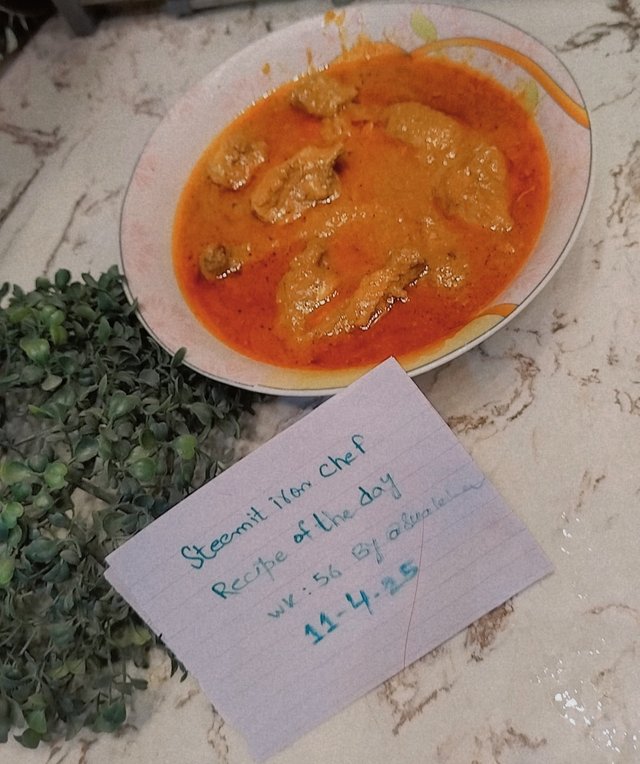 Steemit iron chef
Recipe of the day
wk: 56 By
11-4-25